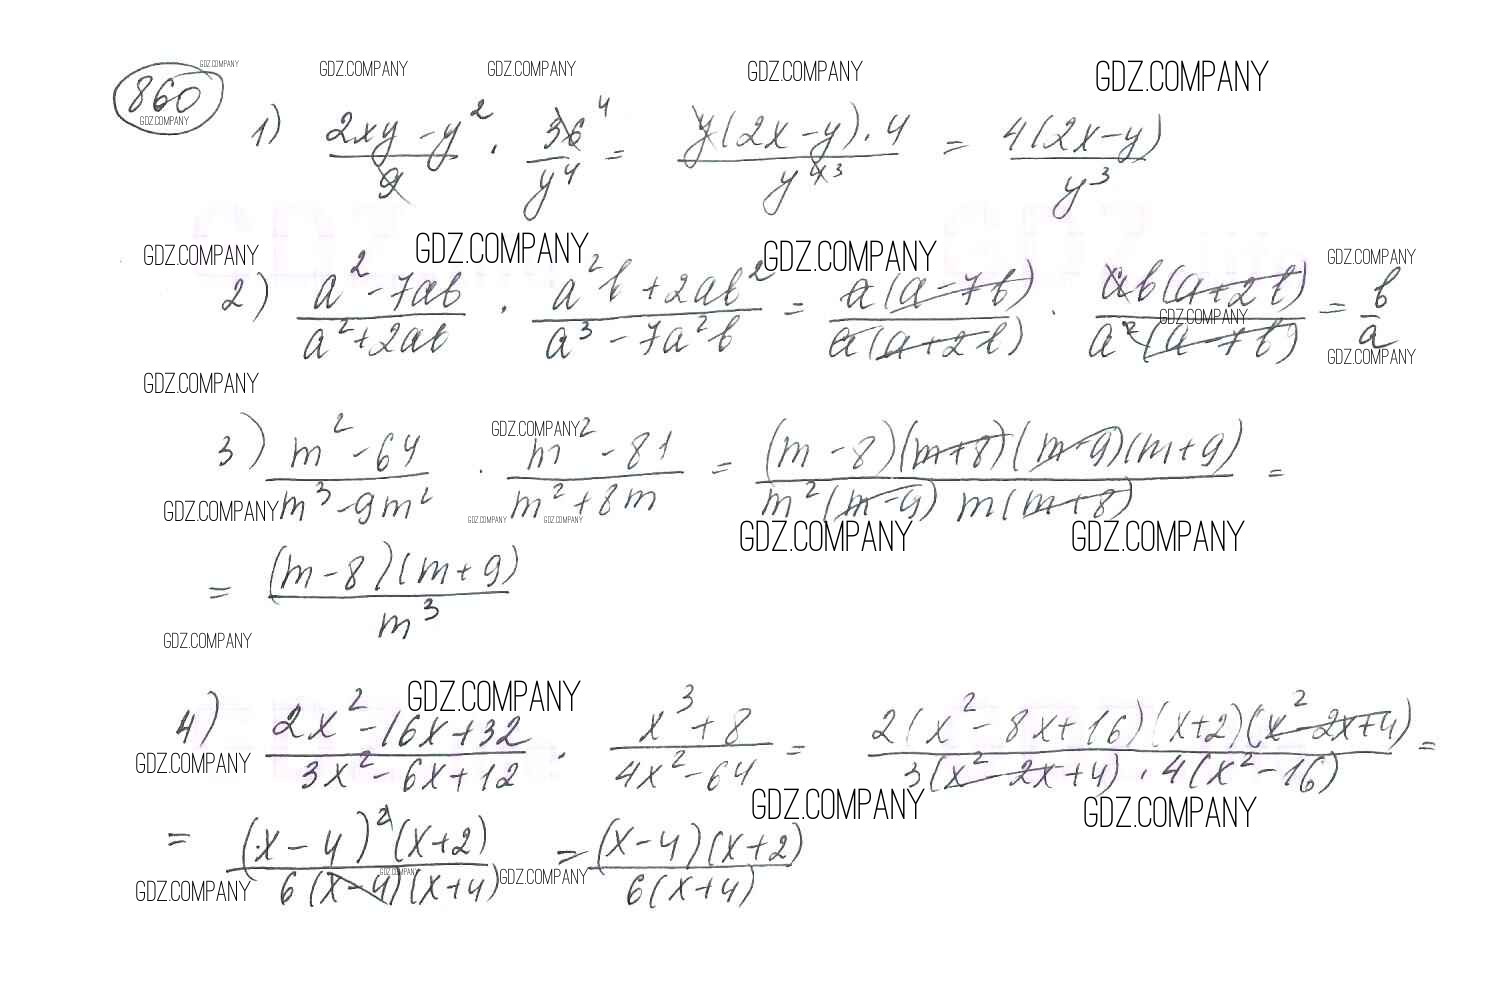 GDZ.COMPANY GDZ.COMPANY GDZ.COMPANY GDZ.COMPANY GDZ.COMPANY
860
GDZ.COMPANY
1) (2xy - y²)/9 · 36/y⁴ ⁴ = y(2x-y)·4/y⁴ ³ = 4(2x-y)/y³
GDZ.COMPANY GDZ.COMPANY GDZ.COMPANY GDZ.COMPANY
2) (a² - 7ab)/(a² + 2ab) · (a²b + 2ab²)/(a³ - 7a²b) = a(a-7b)/a(a+2b) · ab(a+2b)/a²(a-7b) = b/a
GDZ.COMPANY GDZ.COMPANY
GDZ.COMPANY
GDZ.COMPANY
3) (m² - 64)/(m³ - 9m²) · (m² - 81)/(m² + 8m) = (m-8)(m+8)(m-9)(m+9)/m²(m-9) m(m+8) =
GDZ.COMPANY GDZ.COMPANY GDZ.COMPANY GDZ.COMPANY GDZ.COMPANY
= (m-8)(m+9)/m³
GDZ.COMPANY
GDZ.COMPANY
4) (2x² - 16x + 32)/(3x² - 6x + 12) · (x³ + 8)/(4x² - 64) = 2(x² - 8x + 16)(x+2)(x² - 2x + 4)/3(x² - 2x + 4) · 4(x² - 16) =
GDZ.COMPANY GDZ.COMPANY GDZ.COMPANY
= (x-4)²(x+2)/6(x-4)(x+4) = (x-4)(x+2)/6(x+4)
GDZ.COMPANY GDZ.COMPANY GDZ.COMPANY